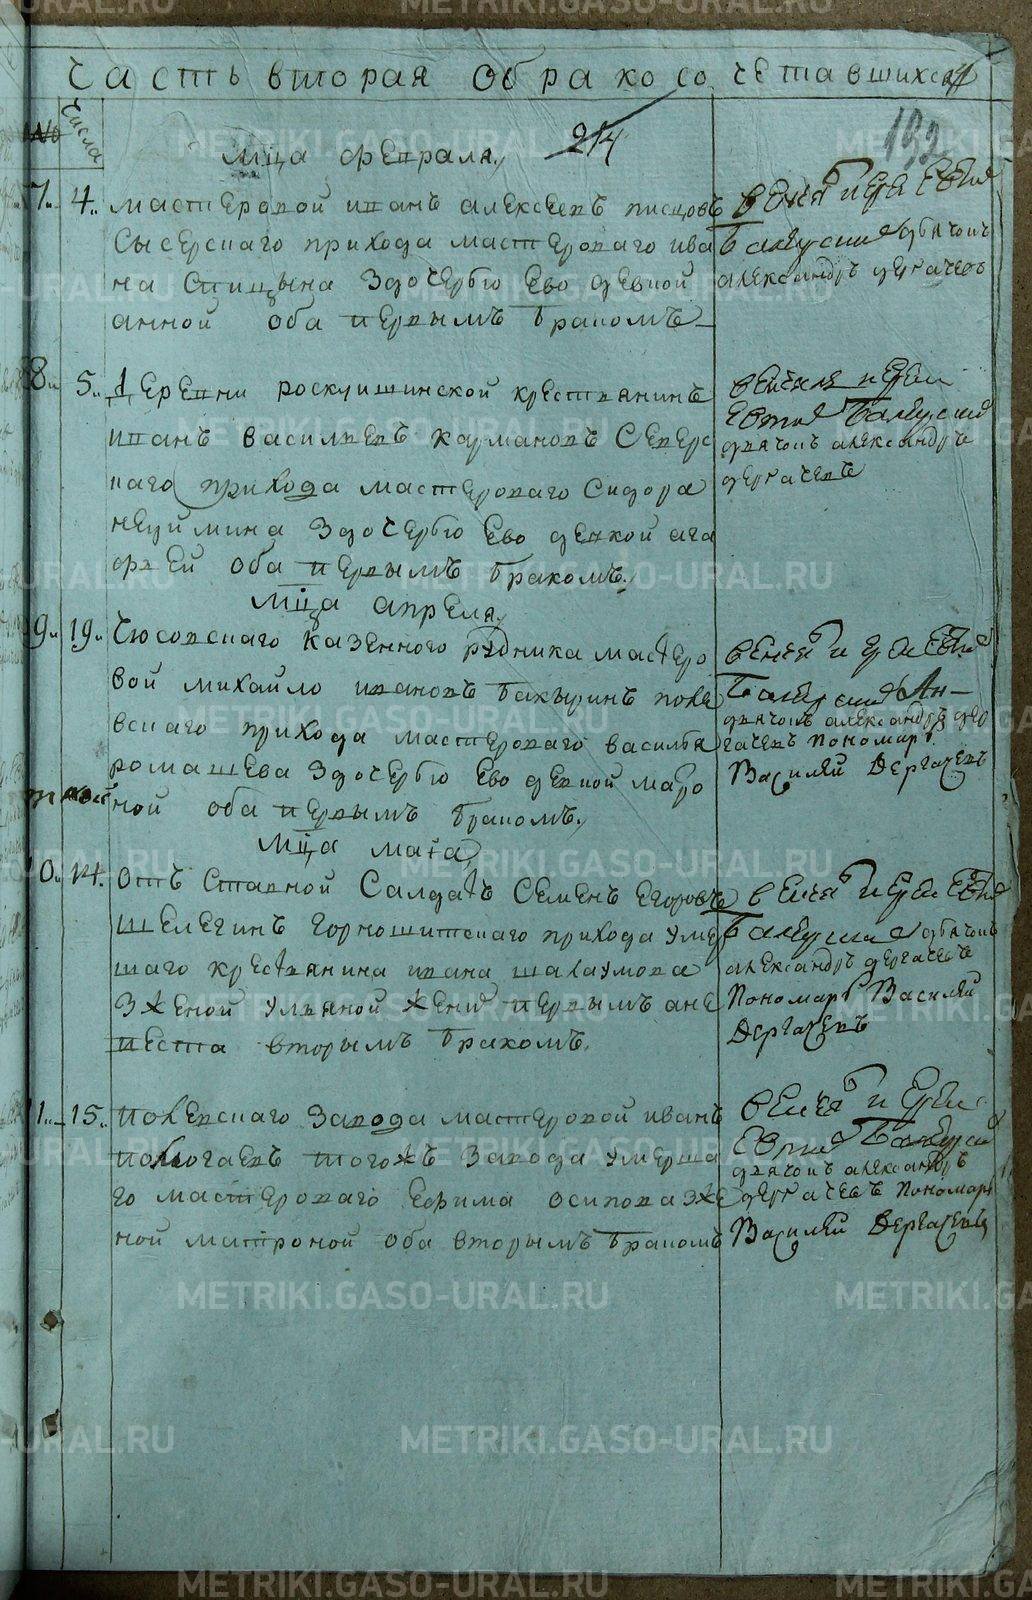 Часть вторая о бракосочетавшихся
№ Числа
214
192
Мца февраля
7 4 мастеровой иванъ алексеевъ писцовъ
Сысерскаго прихода мастероваго ива
на спицына здочерью ево девкой
анной оба первымъ бракомъ
венчалъ иерей Евтихий
дьячокъ
александръ дергачевъ
8 5 Деревни роскуишинской крестьянинъ
иванъ васильевъ кармановъ Северс
каго прихода мастероваго Сидора
неуймина здочерью ево девкой ага
фьей оба первымъ бракомъ
венчалъ иерей
дьячокъ александръ
дергачевъ
Мца апреля
9 19 Чюсовскаго казенного рудника мастеро
вой михайло ивановъ бакыринъ поле
вскаго прихода мастероваго василья
ромашева здочерью ево девкой матро
ной оба первымъ бракомъ
венчалъ иерей
дьячокъ александръ дер
гачевъ пономарь
Василий Дергачевъ
Мца маія
10 14 отъ Ставной Салдатъ Семенъ Егоровъ
шелегинъ горношитскаго прихода умер
шаго крестьянина ивана шалаумова
зженой ульяной жених первымъ ане
веста вторымъ бракомъ
венчалъ иерей
дьячокъ
александръ дергачевъ
пономарь Василий
Дергачевъ
11 15 полевскаго завода мастеровой иванъ
тогожъ завода умерша
го мастероваго Ефима осипова зже
ной матроной оба вторымъ бракомъ
венчалъ иерей
дьячокъ александръ
дергачевъ пономарь
Василий Дергачевъ
METRIKI.GASO-URAL.RU